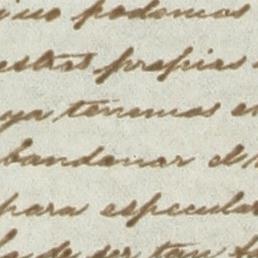 no podemos
estras propias
ya tenemos en
bandonar el
para especular
de ser tan